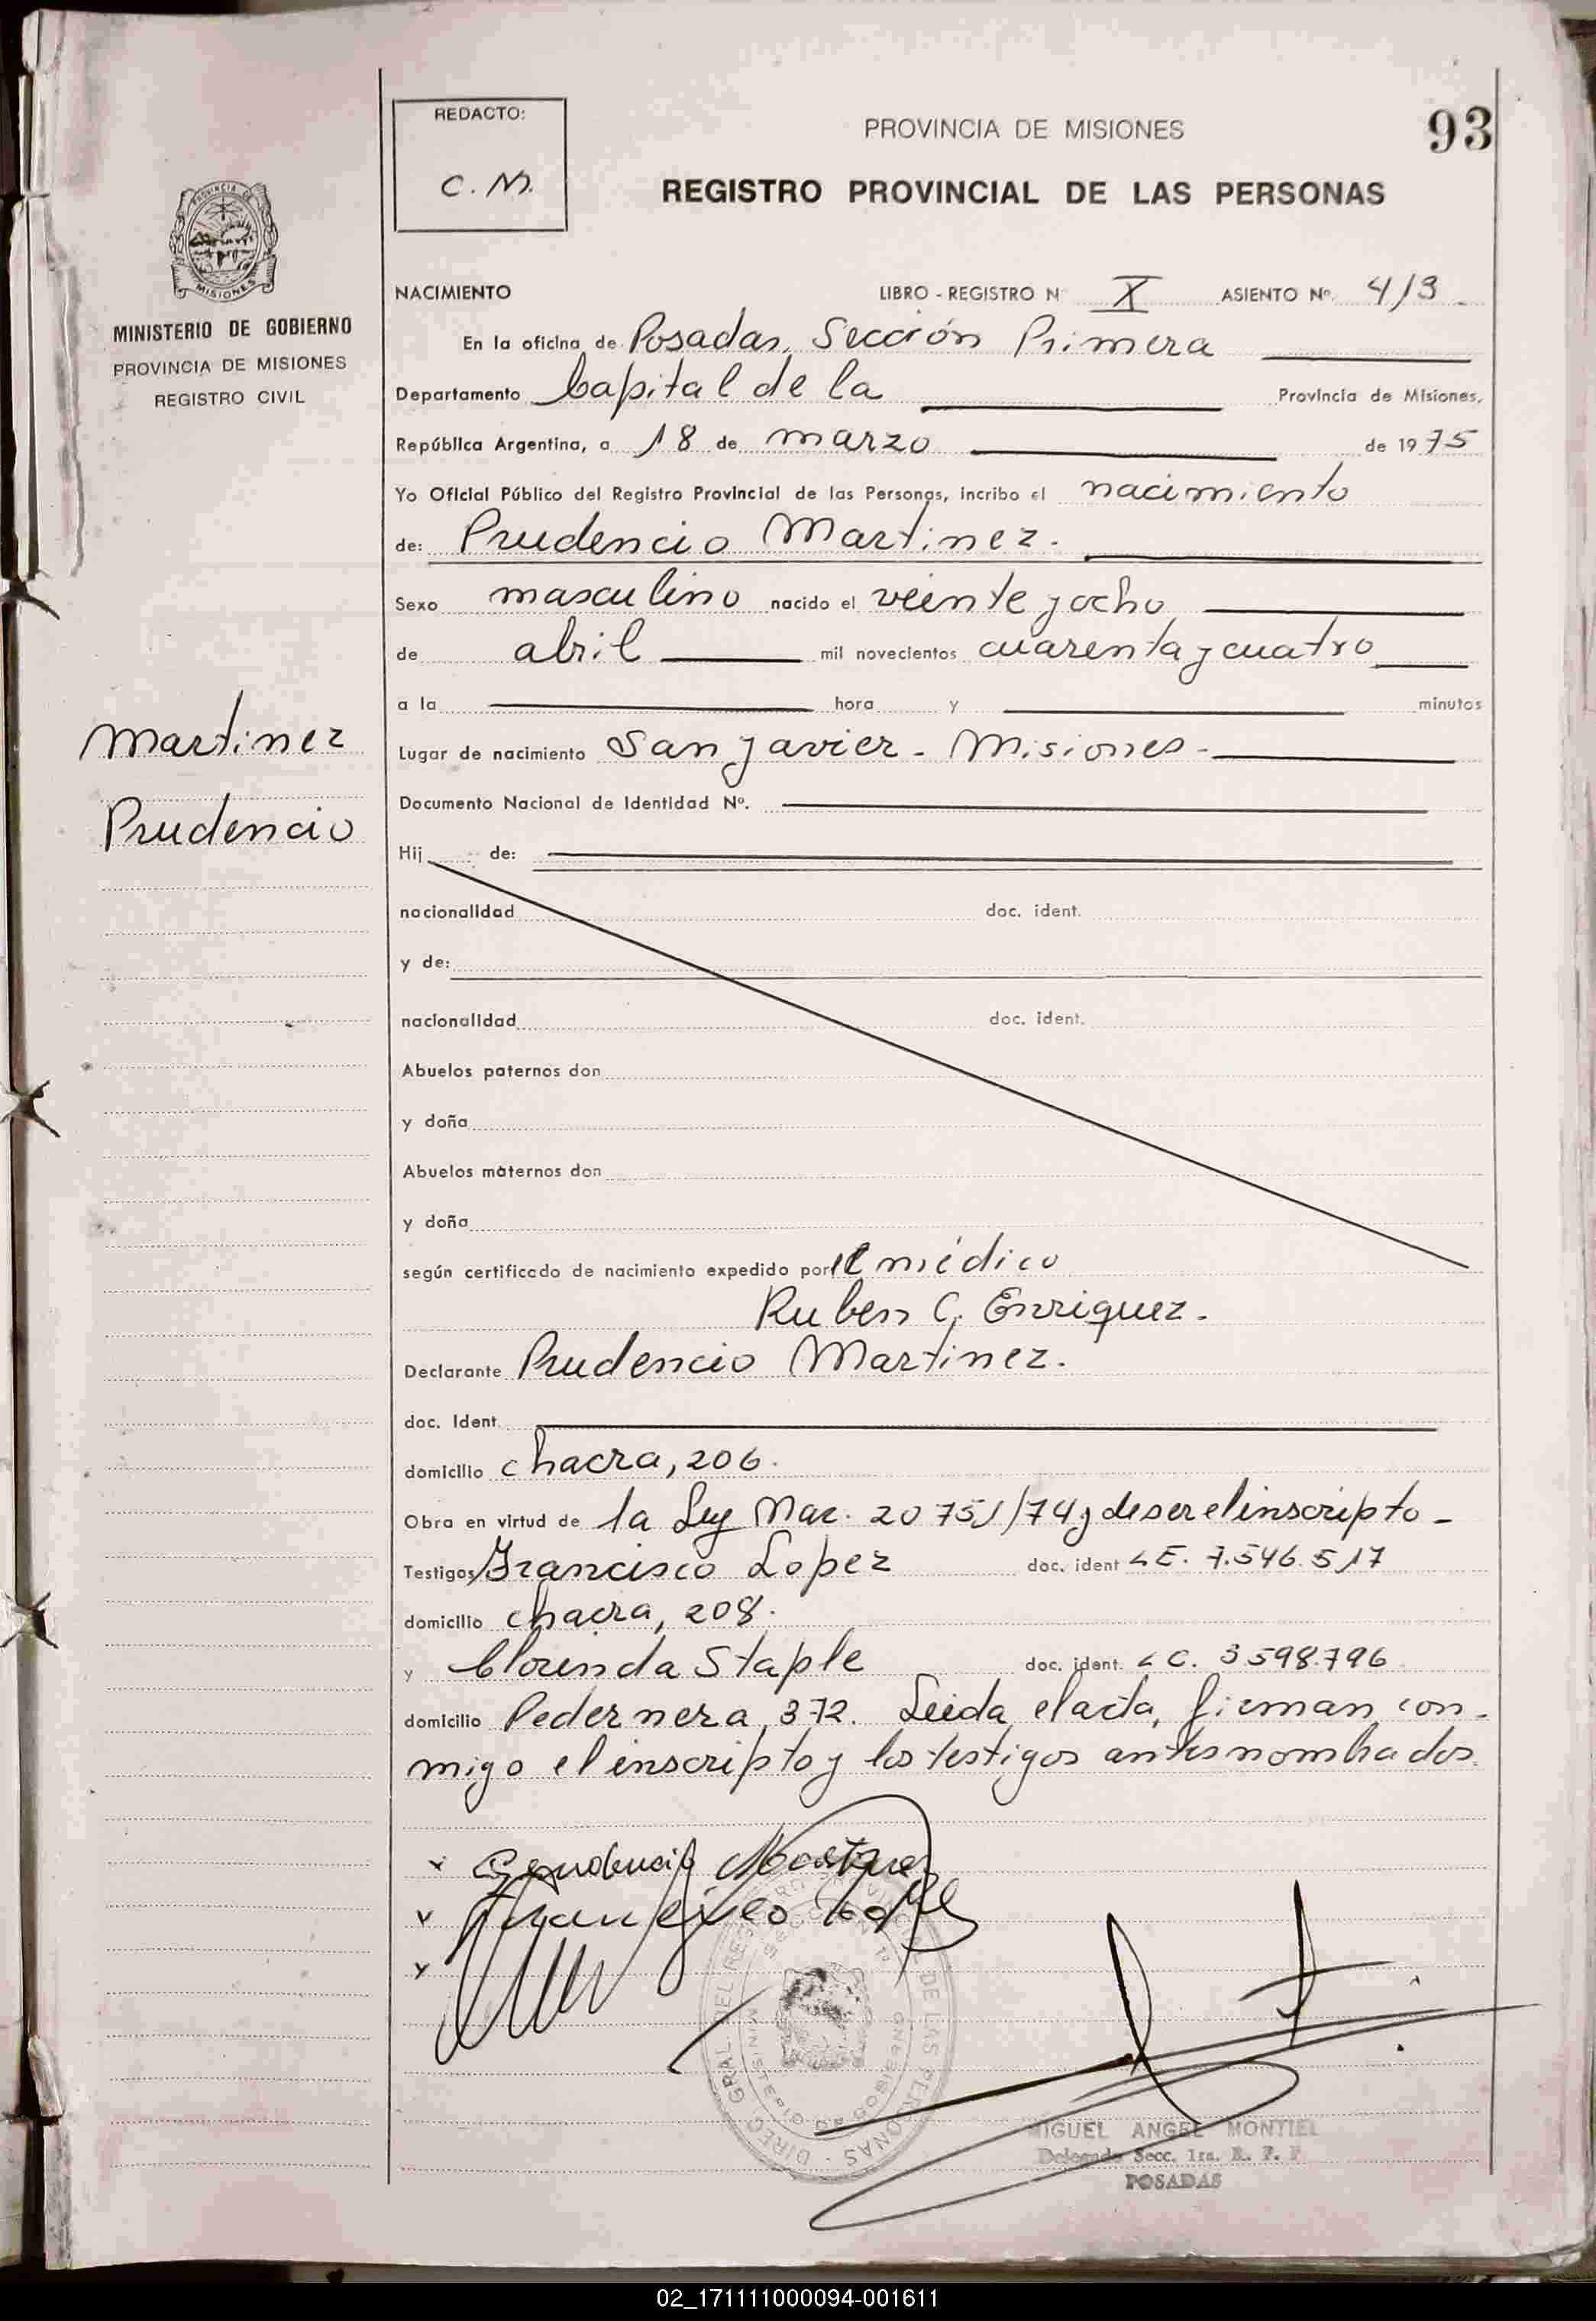 REDACTO:
C. M.
PROVINCIA DE MISIONES
93
REGISTRO PROVINCIAL DE LAS PERSONAS
MISIONES
MINISTERIO DE GOBIERNO
PROVINCIA DE MISIONES
REGISTRO CIVIL
NACIMIENTO LIBRO - REGISTRO Nº X ASIENTO Nº. 413
En la oficina de Posadas, Sección Primera
Departamento Capital de la Provincia de Misiones,
República Argentina, a 18 de marzo de 1975
Yo Oficial Público del Registro Provincial de las Personas, incribo el nacimiento
de: Prudencio Martinez.
Sexo masculino nacido el veinte y ocho
de abril mil novecientos cuarenta y cuatro
a la hora y minutos
Martinez
Prudencio
Lugar de nacimiento San Javier - Misiones -
Documento Nacional de Identidad Nº.
Hij de:
nacionalidad doc. ident.
y de:
nacionalidad doc. ident.
Abuelos paternos don
y doña
Abuelos maternos don
y doña
según certificado de nacimiento expedido por el médico
Ruben C. Enriquez.
Declarante Prudencio Martinez.
doc. Ident.
domicilio chacra, 206.
Obra en virtud de la Ley Nac. 20751/74 y de ser el inscripto -
Testigos Francisco Lopez doc. ident LE. 7.546.517
domicilio chacra, 208.
y Clorinda Staple doc. ident. LC. 3598.796
domicilio Pedernera, 372. Leida el acta, firman con-
migo el inscripto y los testigos antes nombrados.
Prudencio Martinez
Francisco Lopez
MIGUEL ANGEL MONTIEL
Delegado Secc. 1ra. R. P. P.
POSADAS
02_171111000094-001611